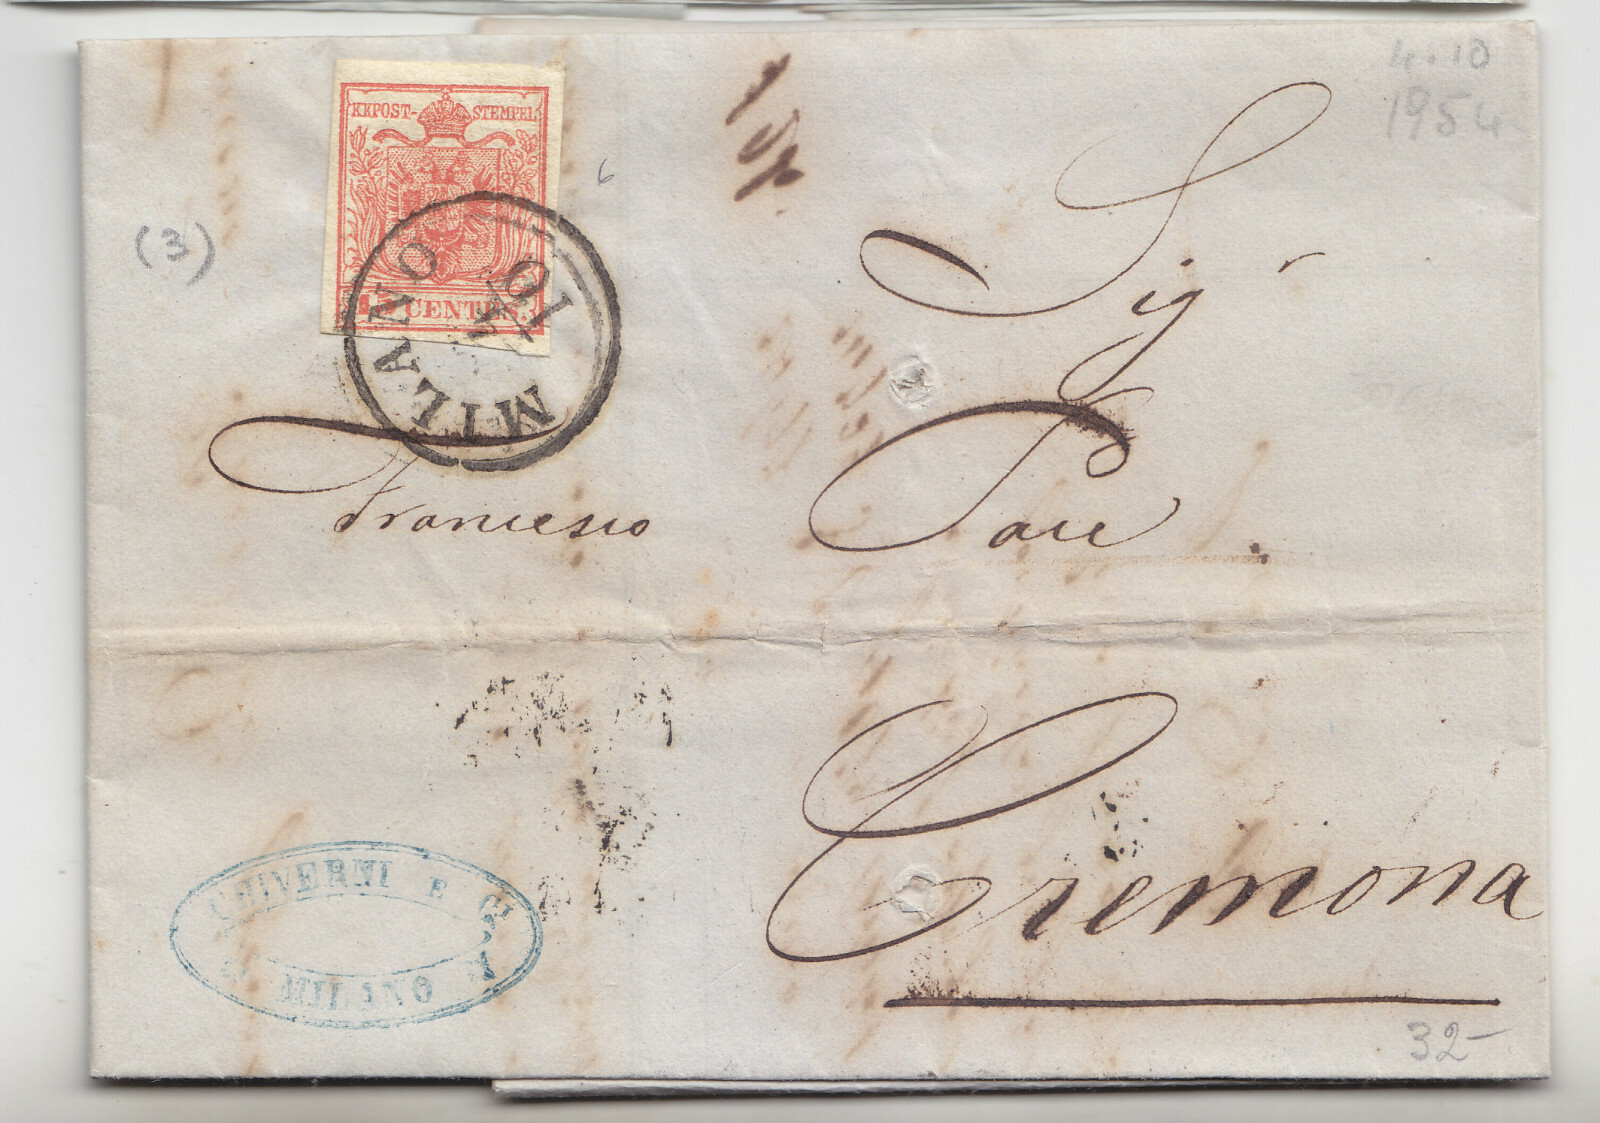 4.10
1954
KKPOST-STEMPEL
15 CENTES.
MILANO
10
6
(3)
Sigr
Francesco Pace
Cremona
CHIVERNI E C.
MILANO
32-